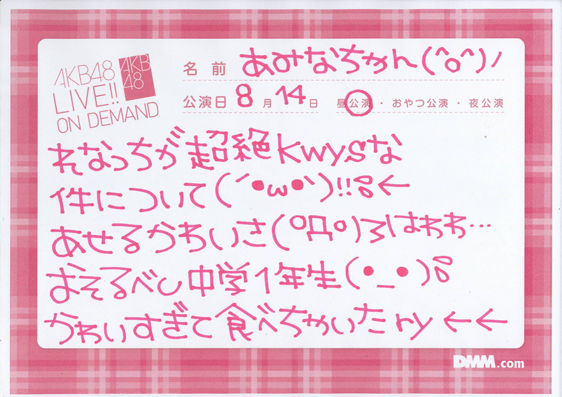 AKB48
LIVE!!
ON DEMAND
AKB
48
名前 あみなちゃん(^o^)ノ
公演日 8月14日 昼公演・おやつ公演・夜公演
れなっちが超絶kwysな
件について(´•ω•`)!!←
あせるかわいさ(ºДº)ろはわわ…
おそるべし中学1年生(•_•)
かわいすぎて食べちゃいたry←←
DMM.com